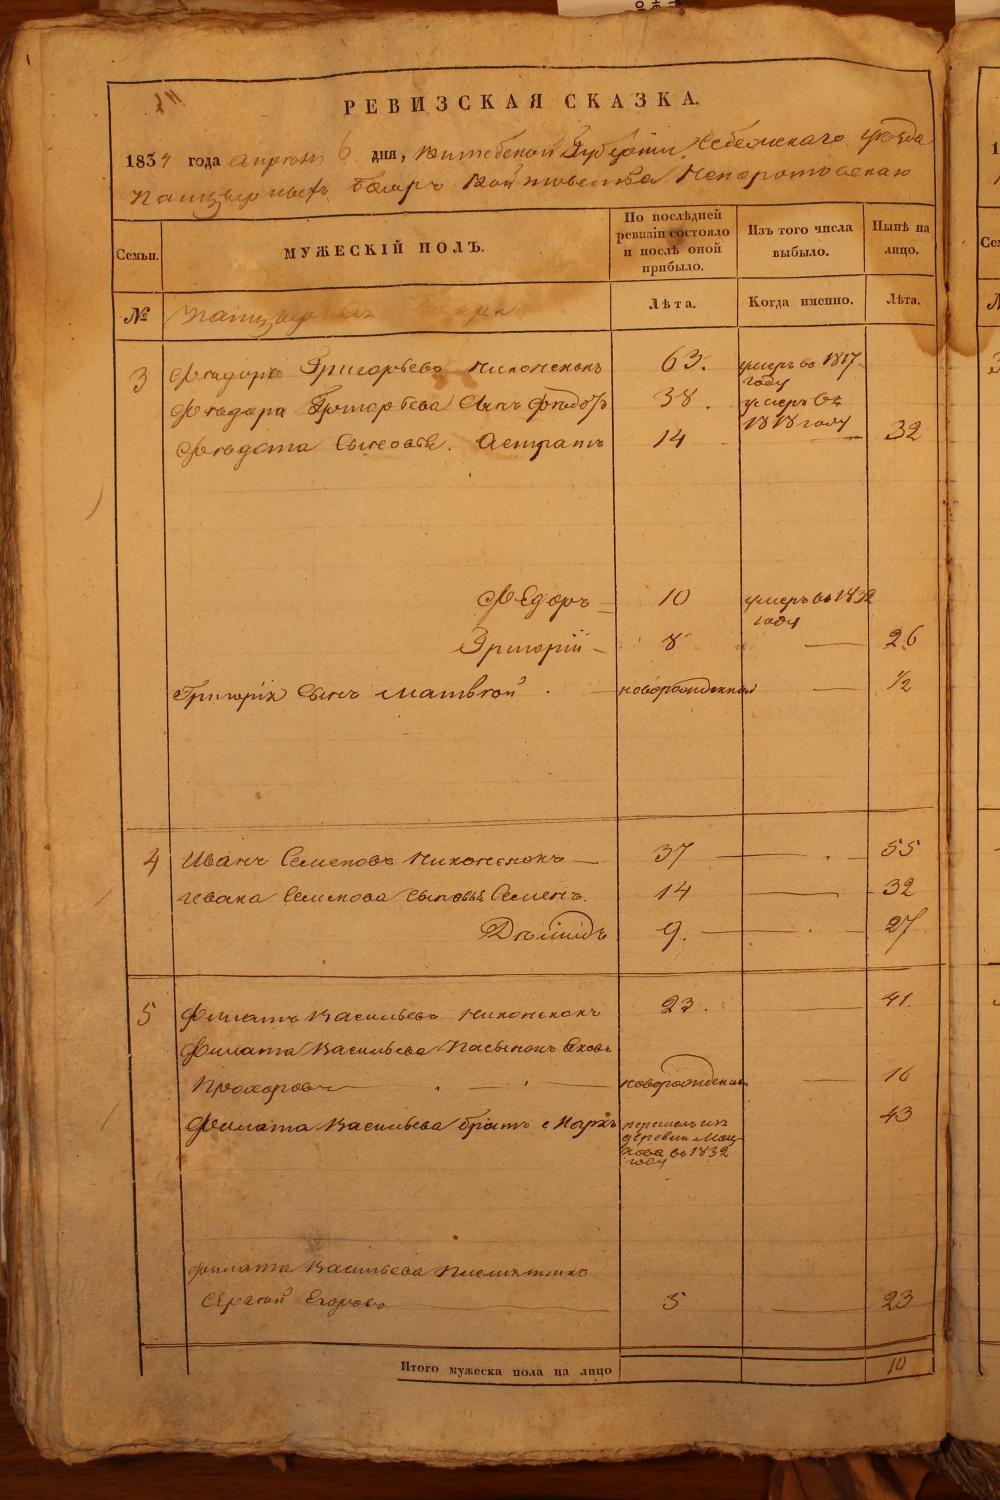 РЕВИЗСКАЯ СКАЗКА.
1834 года апреля 6 дня, Витебской Губернии, Себежскаго уѣзда
Панцырныхъ бояръ Войтовства Непоротовскаго
Семьи. МУЖЕСКІЙ ПОЛЪ. По послѣдней ревизіи состояло и послѣ оной прибыло. Изъ того числа выбыло. Нынѣ на лицо.
№ Панцырныхъ Лѣта. Когда именно. Лѣта.
3 Григорьевъ Никоненокъ 63. умеръ въ 1817 году
Григорьева Сынъ Федотъ 38. умеръ въ 1818 году
Федота Сыновья. 14 32
Федоръ 10 умеръ въ 1832 году
Григорій 8 26
Григорія Сынъ Матвѣй новорожденный 1/2
4 Иванъ Семеновъ Никоненокъ 37 55
Ивана Семенова Сыновья Семенъ. 14 32
9. 27
5 Филатъ Васильевъ Никоненокъ 23. 41.
Филата Васильева Пасынокъ
Прохоровъ новорожденный 16
Филата Васильева братъ Маркъ перешелъ изъ деревни въ 1832 году 43
Филата Васильева Племянникъ
Сергѣй Егоровъ 5 23
Итого мужеска пола на лицо 10